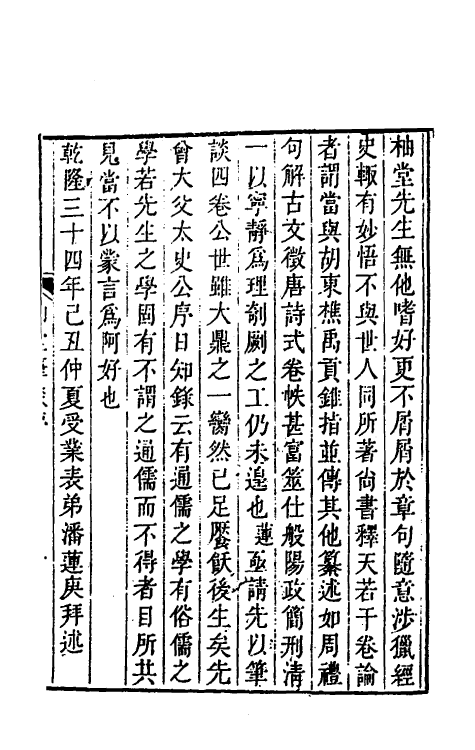 柚堂先生無他嗜好更不屑屑於章句隨意涉獵經
史輙有妙悟不與世人同所著尙書釋天若干卷論
者謂當與胡東樵禹貢錐指並傳其他纂述如周禮
句解古文徵唐詩式卷帙甚富筮仕般陽政簡刑淸
一以寧靜爲理剞劂之工仍未遑也蓮亟請先以筆
談四卷公世雖大鼎之一臠然已足饜飫後生矣先
曾大父太史公序日知錄云有通儒之學有俗儒之
學若先生之學固有不謂之通儒而不得者目所共
見當不以蒙言爲阿好也
乾隆三十四年己丑仲夏受業表弟潘蓮庚拜述